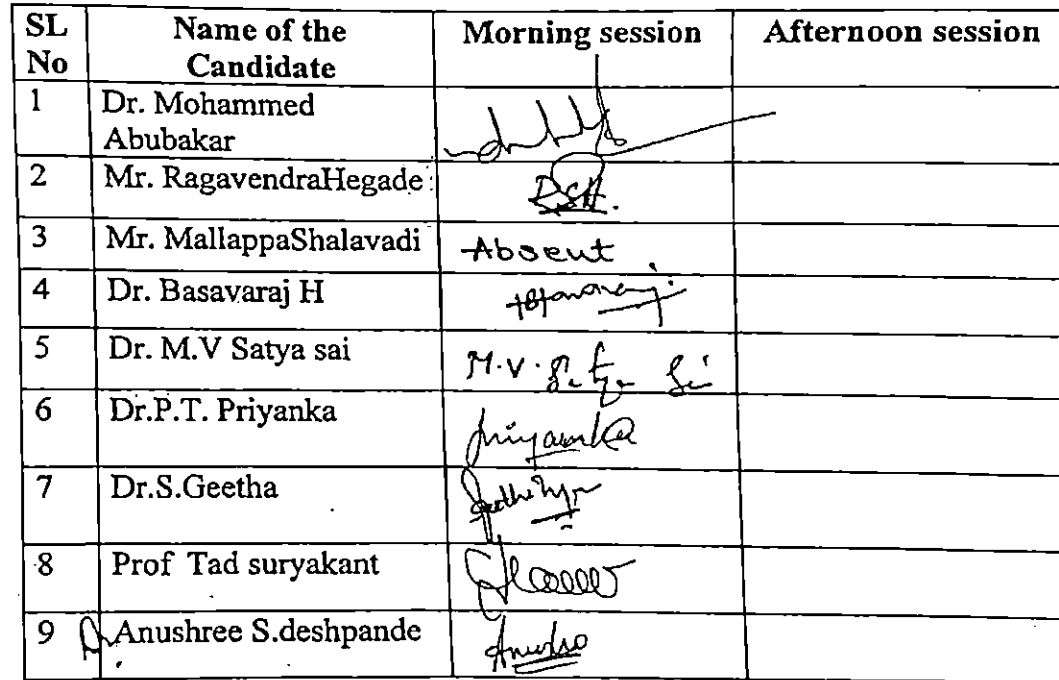 SL No Name of the Candidate Morning session Afternoon session
1 Dr. Mohammed Abubakar
2 Mr. RagavendraHegade RSH.
3 Mr. MallappaShalavadi Absent
4 Dr. Basavaraj H
5 Dr. M.V Satya sai M.V. Satya Sai
6 Dr.P.T. Priyanka Priyanka
7 Dr.S.Geetha
8 Prof Tad suryakant
9 Dr. Anushree S.deshpande